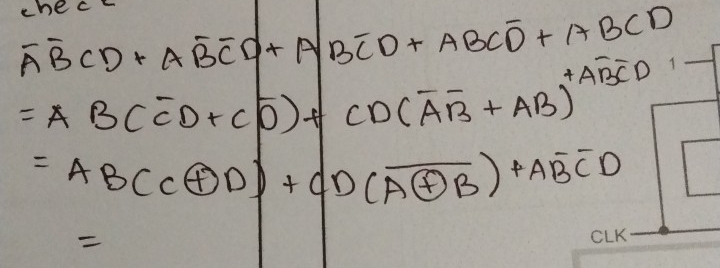 check
A̅ B̅ C D + A B̅ C̅ D + A B C̅ D + A B C D̅ + A B C D
= A B ( C̅ D + C D̅ ) + C D ( A̅ B̅ + A B ) + A B̅ C̅ D
1
= A B ( C ⊕ D ) + C D ( \overline{A ⊕ B} ) + A B̅ C̅ D
=
CLK